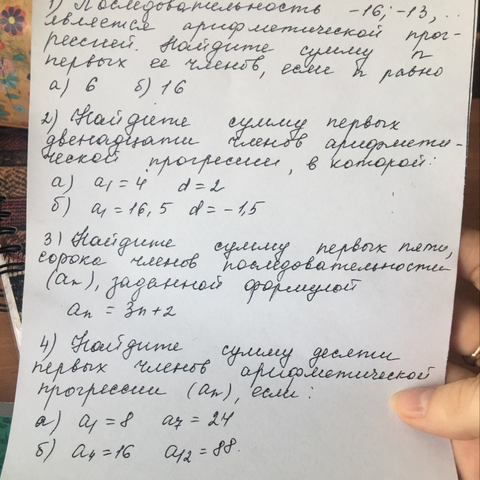 1) Последовательность -16; -13, ..
является арифметической прог-
рессией. Найдите сумму n
первых ее членов, если n равно
а) 6 б) 16
2) Найдите сумму первых
двенадцати членов арифмети-
ческой прогрессии, в которой:
а) a1 = 4 d = 2
б) a1 = 16,5 d = -1,5
3) Найдите сумму первых пяти,
сорока членов последовательности
(an), заданной формулой
an = 3n + 2
4) Найдите сумму десяти
первых членов арифметической
прогрессии (an), если:
а) a1 = 8 a7 = 24
б) a4 = 16 a12 = 88.